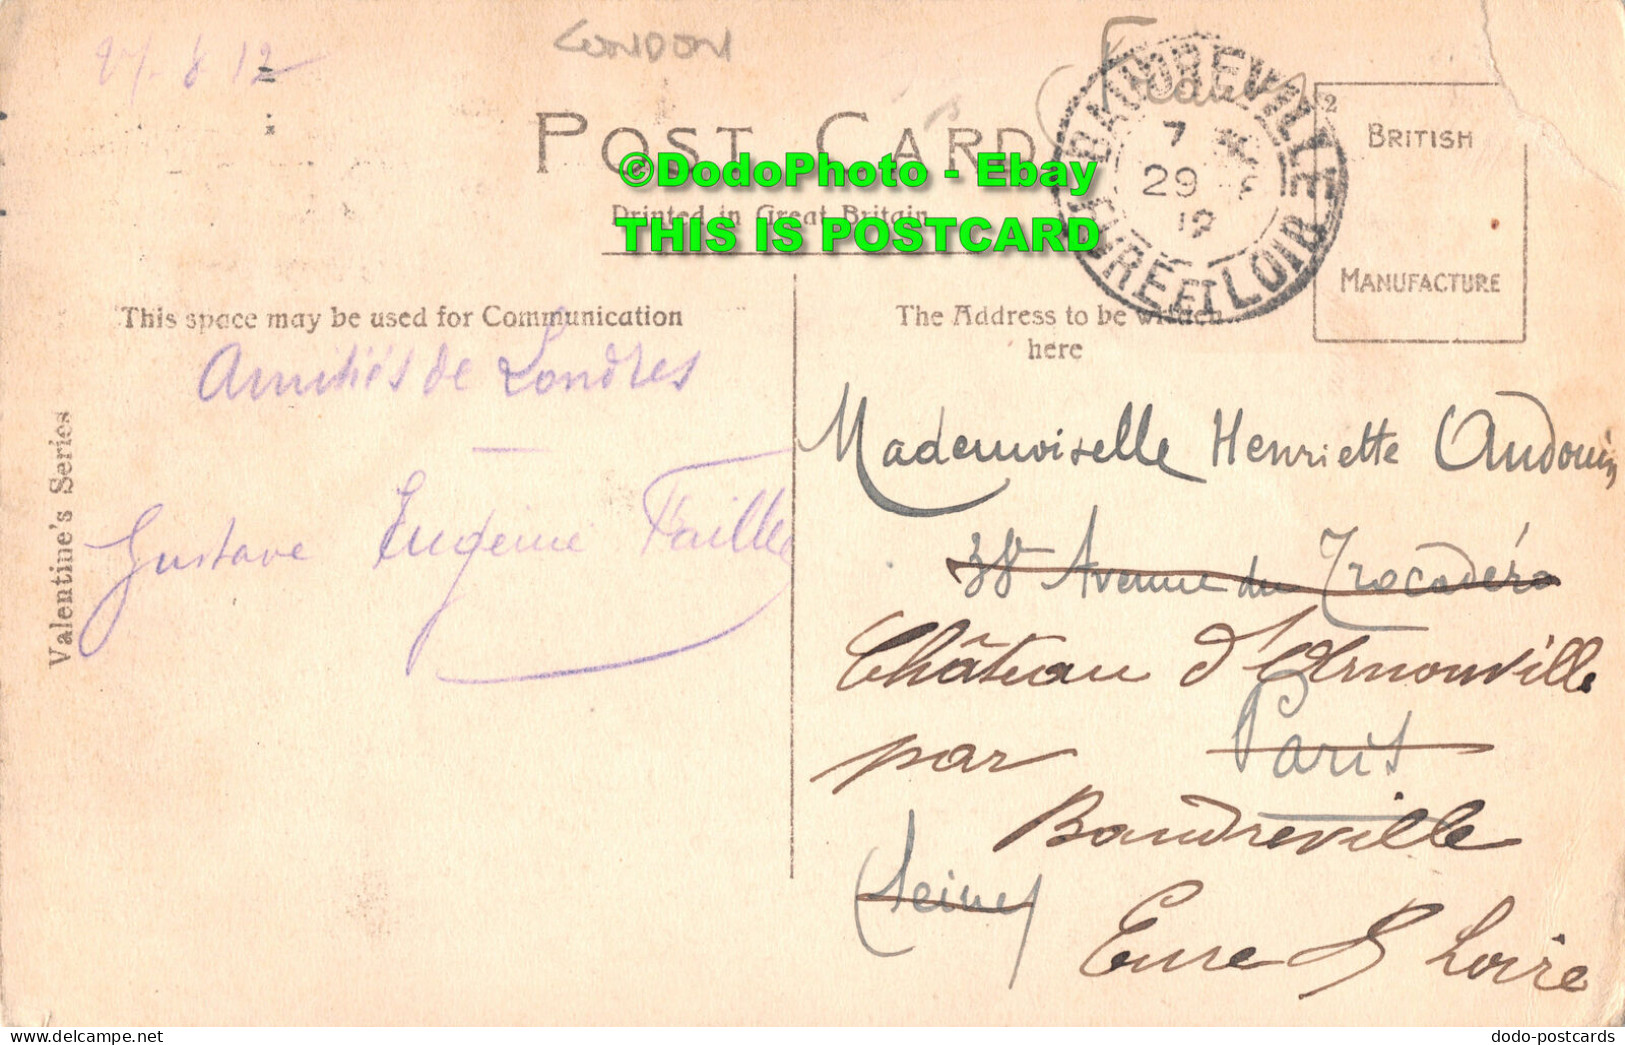 27.8.12
LONDON
POST CARD
©DodoPhoto - Ebay
Printed in Great Britain
THIS IS POSTCARD
BAUDREVILLE
7
29
12
EURE ET LOIR
2
BRITISH
MANUFACTURE
This space may be used for Communication
The Address to be written
here
Valentine's Series
Amitiés de Londres
Gustave Eugénie Faille
Mademoiselle Henriette Audouin
38 Avenue du Trocadéro
Château d'Arnouville
par Paris
Baudreville
(Seine)
Eure & Loire
dodo-postcards